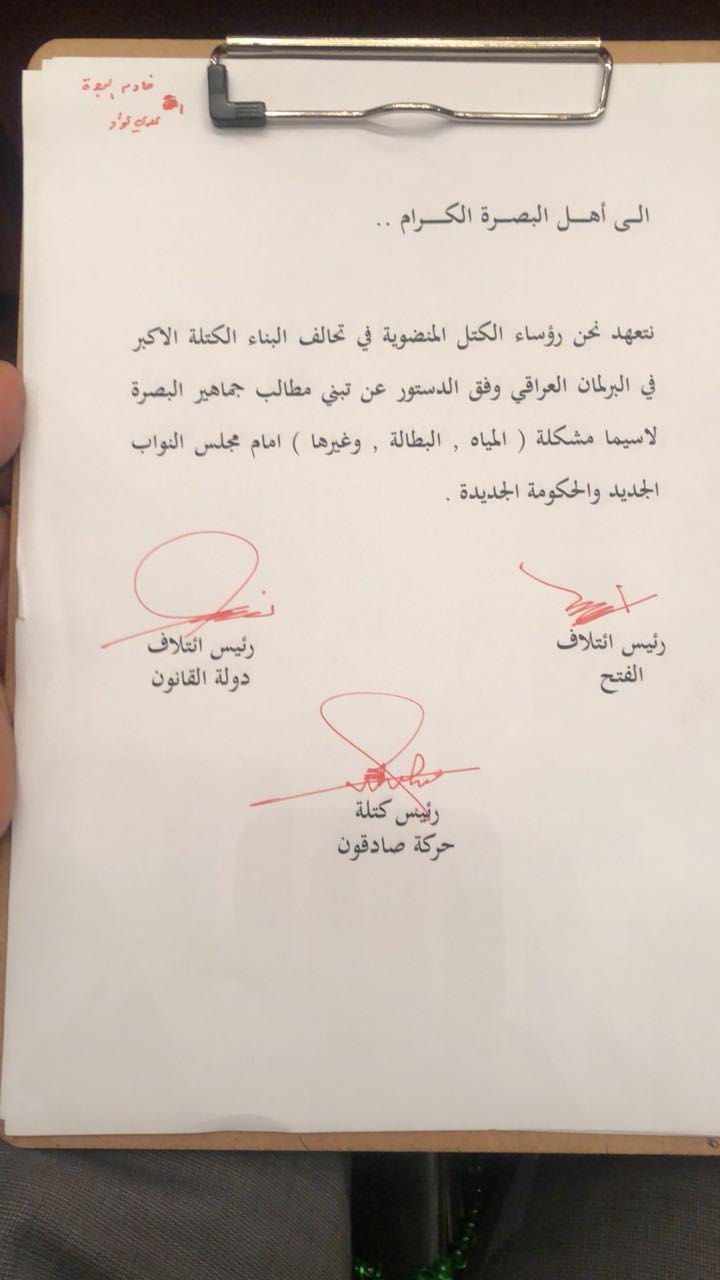 خادم البصرة
عدي عواد
الـى أهـــل البصـــرة الكـــرام ..
نتعهد نحن رؤساء الكتل المنضوية في تحالف البناء الكتلة الاكبر
في البرلمان العراقي وفق الدستور عن تبني مطالب جماهير البصرة
لاسيما مشكلة ( المياه , البطالة , وغيرها ) امام مجلس النواب
الجديد والحكومة الجديدة .
رئيس ائتلاف
الفتح
رئيس ائتلاف
دولة القانون
رئيس كتلة
حركة صادقون